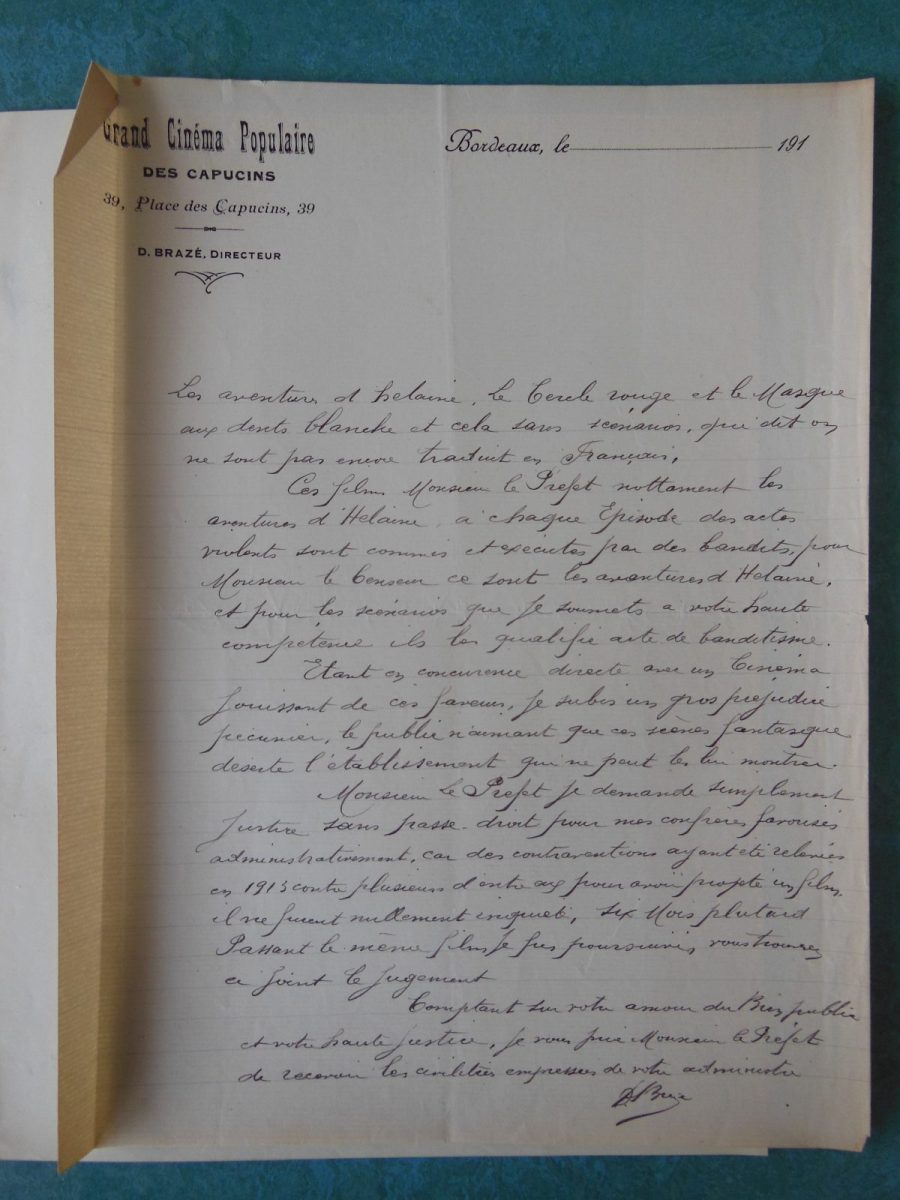 Grand Cinéma Populaire
DES CAPUCINS
39, Place des Capucins, 39
D. BRAZÉ, DIRECTEUR
Bordeaux, le 191
Les aventures d'helaine, le Cercle rouge et le Masque
aux dents blanche et cela sans scénarios, qui dit on
ne sont pas encore traduit en Français.
Ces films Monsieur le Prefet nottament les
aventures d'Helaine, a chaque Episode des actes
violents sont commis et executés par des bandits, pour
Monsieur le Censeur ce sont les aventures d'Helaine,
et pour les scénarios que je soumets a votre haute
compétence ils les qualifie acte de banditisme.
Etant en concurence directe avec un Cinéma
jouissant de ces faveurs, je subis un gros prejudice
pecunier, le public n'aimant que ces scènes fantasque
deserte l'établissement qui ne peut les lui montrer.
Monsieur le Prefet je demande simplement
Justice sans passe-droit pour mes confrères favorisés
administrativement, car des contraventions ayant été relevées
en 1913 contre plusieurs d'entre aux pour avoir projeté un film,
il ne furent nullement inquieté, six Mois plutard
Passant le même film, je fus poursuivi, vous trouverez
ci joint le Jugement
Comptant sur votre amour du Bien public
et votre haute Justice, je vous prie Monsieur le Préfet
de recevoir les civilitées empressées de votre administré